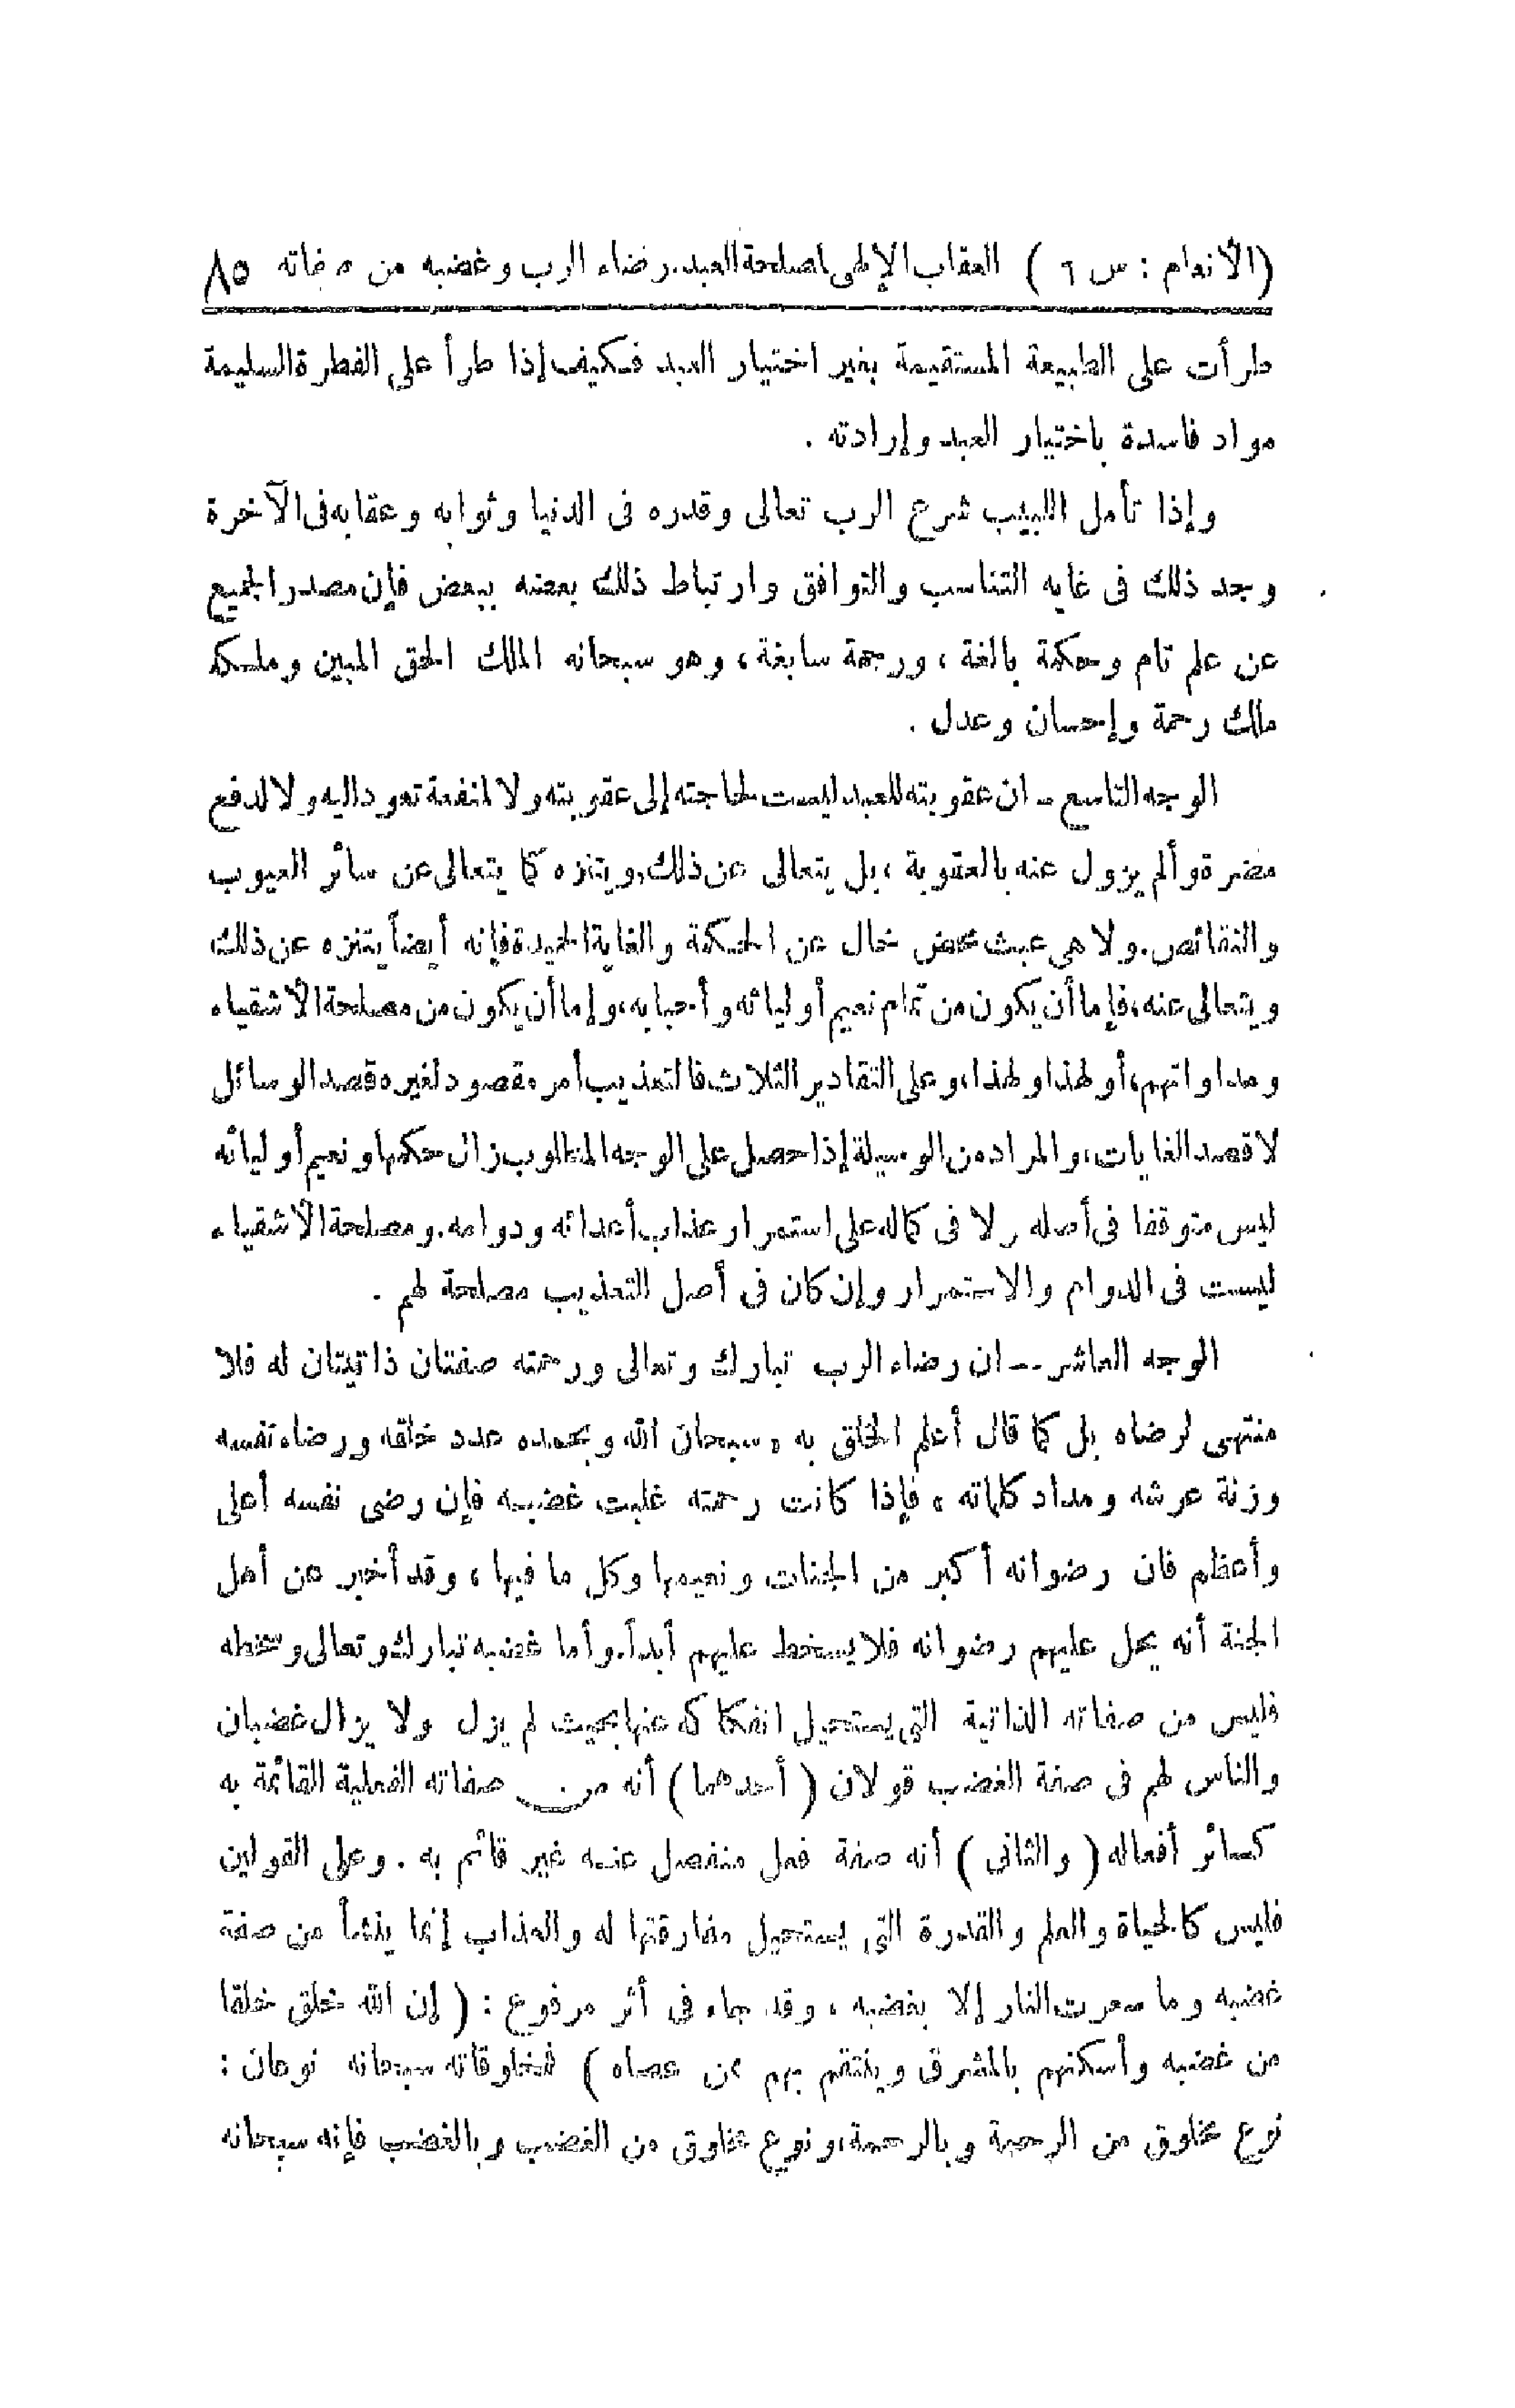 (الأنعام : س ٦ ) العقاب الإلهى لمصلحة العبد. رضاء الرب وغضبه من صفاته ٨٥
طرأت على الطبيعة المستقيمة بغير اختيار العبد فكيف إذا طرأ على الفطرة السليمة
مواد فاسدة باختيار العبد وإرادته .
وإذا تأمل اللبيب شرع الرب تعالى وقدره فى الدنيا وثوابه وعقابه فى الآخرة
وجد ذلك فى غاية التناسب والتوافق وارتباط ذلك بعضه ببعض فإن مصدر الجميع
عن علم تام وحكمة بالغة ، ورحمة سابغة ، وهو سبحانه الملك الحق المبين وملكه
ملك رحمة وإحسان وعدل .
الوجه التاسع ـ ان عقوبته للعبد ليست لحاجته إلى عقوبته ولا لمنفعة تعود اليه ولا لدفع
مضرة وألم يزول عنه بالعقوبة ، بل يتعالى عن ذلك ويتنزه كما يتعالى عن سائر العيوب
والنقائص. ولا هى عبث محض خال عن الحكمة والغاية الحميدة فإنه أيضاً يتنزه عن ذلك
ويتعالى عنه، فإما أن يكون من تمام نعيم أوليائه وأحبابه، وإما أن يكون من مصلحة الأشقياء
ومداواتهم، أو لهذا ولهذا، وعلى التقادير الثلاث فالتعذيب أمر مقصود لغيره قصد الوسائل
لا قصد الغايات، والمراد من الوسيلة إذا حصل على الوجه المطلوب زال حكمها ونعيم أوليائه
ليس متوقفا فى أصله ولا فى كماله على استمرار عذاب أعدائه ودوامه. ومصلحة الأشقياء
ليست فى الدوام والاستمرار وإن كان فى أصل التعذيب مصلحة لهم .
الوجه العاشر -- ان رضاء الرب تبارك وتعالى ورحمته صفتان ذاتيتان له فلا
منتهى لرضاه بل كما قال أعلم الخلق به « سبحان الله وبحمده عدد خلقه ورضاء نفسه
وزنة عرشه ومداد كلماته » فإذا كانت رحمته غلبت غضبه فإن رضى نفسه أعلى
وأعظم فان رضوانه أكبر من الجنات ونعيمها وكل ما فيها ، وقد أخبر عن أهل
الجنة أنه يحل عليهم رضوانه فلا يسخط عليهم أبداً. وأما غضبه تبارك وتعالى وسخطه
فليس من صفاته الذاتية التى يستحيل انفكاكه عنها بحيث لم يزل ولا يزال غضبان
والناس لهم فى صفة الغضب قولان ( أحدهما ) أنه من صفاته الفعلية القائمة به
كسائر أفعاله ( والثانى ) أنه صفة فعل منفصل عنه غير قائم به . وعلى القولين
فليس كالحياة والعلم والقدرة التى يستحيل مفارقتها له والعذاب إنما ينشأ من صفة
غضبه وما سعرت النار إلا بغضبه ، وقد جاء فى أثر مرفوع : ( إن الله خلق خلقا
من غضبه وأسكنهم بالمشرق وينتقم بهم ممن عصاه ) فمخلوقاته سبحانه نوعان :
نوع مخلوق من الرحمة وبالرحمة، ونوع مخلوق من الغضب وبالغضب فإنه سبحانه